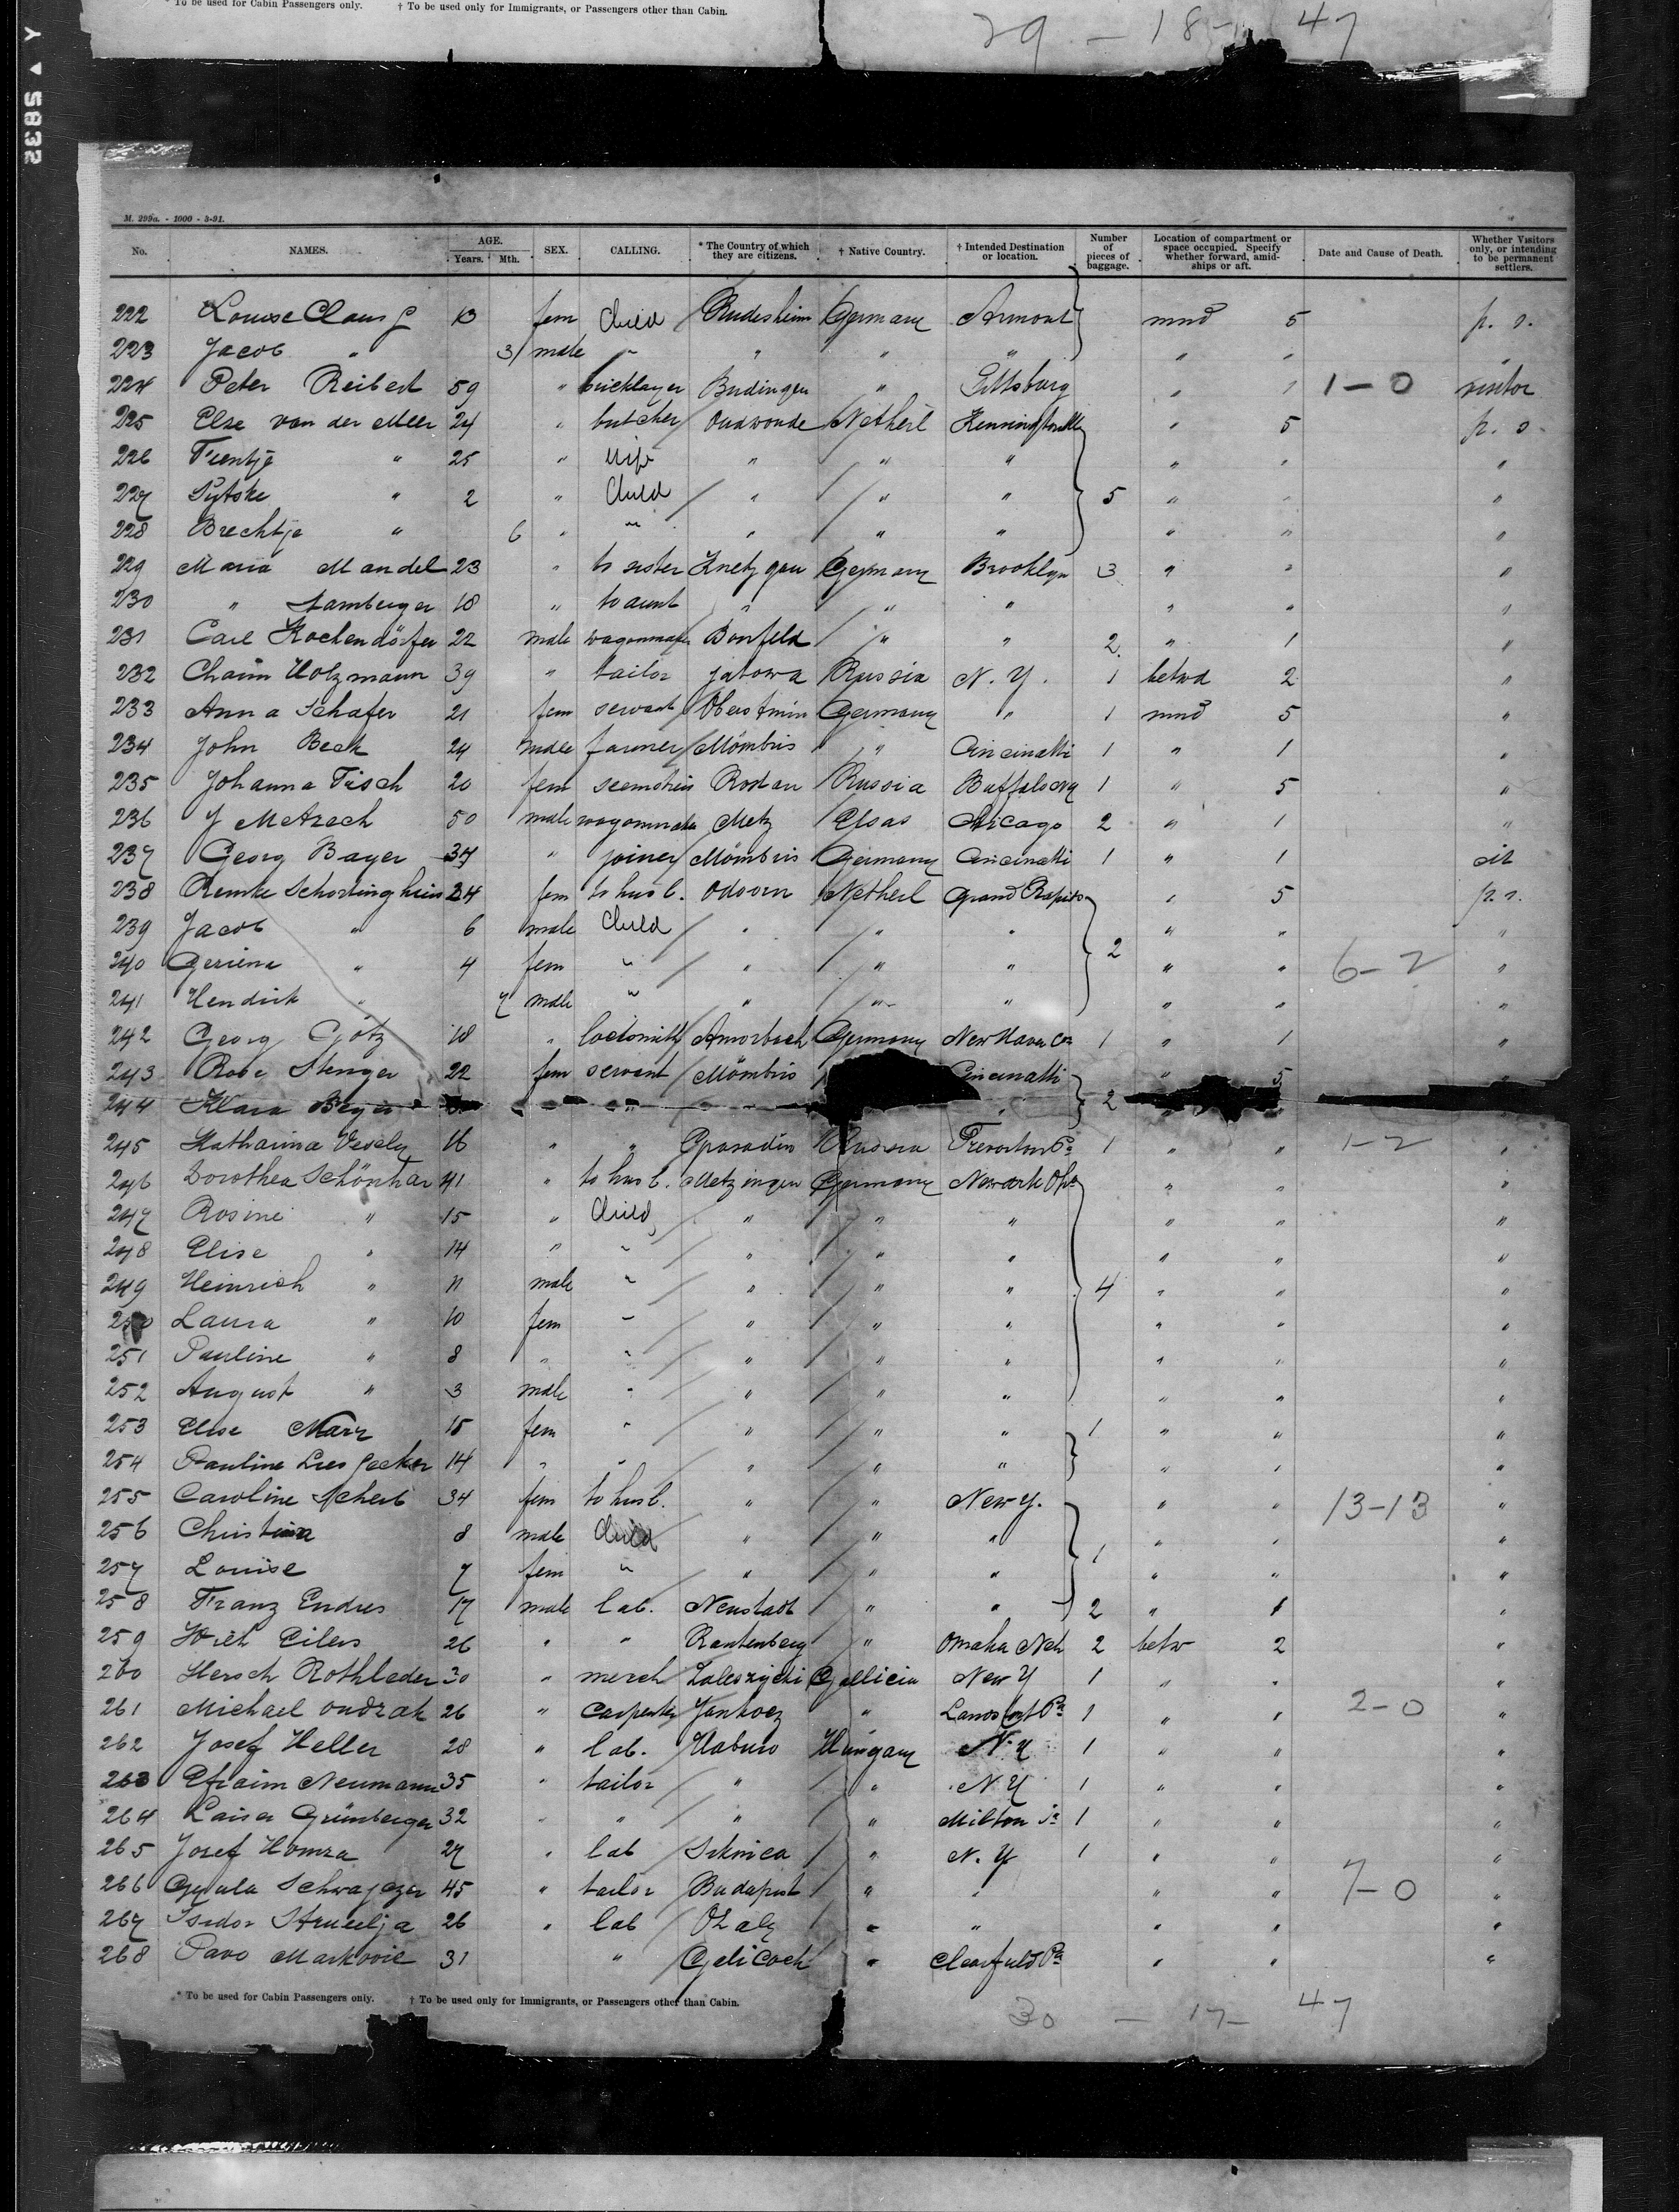 * To be used for Cabin Passengers only. † To be used only for Immigrants, or Passengers other than Cabin.
29 – 18 – 47
Y ▸ 5832
M. 299a. - 1000 - 3-91.
No. NAMES. AGE. Years. Mth. SEX. CALLING. * The Country of which they are citizens. † Native Country. † Intended Destination or location. Number of pieces of baggage. Location of compartment or space occupied. Specify whether forward, amidships or aft. Date and Cause of Death. Whether Visitors only, or intending to be permanent settlers.
222 Louise Claus fem Child Rudesheim Germany Armont mnd 5 p. s.
223 Jacob " 3 male " " " " " " "
224 Peter Reibert 59 " bricklayer Budingen " Pittsburg " 1 1–0 visitor
225 Else van der Meer 24 " butcher Oudwoude Netherl " 5 p. s.
226 Tientje " 25 " wife " " " " " "
227 Sytske " 2 " Child " " " 5 " " "
228 Brechtje " 6 " " " " " " " "
229 Maria Mandel 23 " to sister Knetzgau Germany Brooklyn 3 " " "
230 " Hamberger 18 " to aunt " " " " " "
231 Carl Kochendörfer 22 male wagonmaker Bonfeld " " 2 " 1 "
232 Chaim Holzmann 39 " tailor Jatowa Russia N. Y. 1 betwd 2 "
233 Anna Schafer 21 fem servant Germany " 1 mnd 5 "
234 John Beck 24 male farmer Mömbris " Cincinatti 1 " 1 "
235 Johanna Fisch 20 fem Russia Buffalo NY 1 " 5 "
236 J 50 male wagonmaker Metz Elsas Chicago 2 " 1 "
237 Georg Bayer 37 " joiner Mömbris Germany Cincinatti 1 " 1 cit
238 Remke Schortinghuis 34 fem to husb. Odoorn Netherl Grand Rapids " 5 p. s.
239 Jacob " 6 male Child " " " " " "
240 Geriena " 4 fem " " " " 2 " " 6–2 "
241 Hendrik " 7 male " " " " " " "
242 Georg Götz 18 " locksmith Amorbach Germany New Haven Con 1 " 1 "
243 Rosa Stenger 22 fem servant Mömbris Cincinatti " 5 "
244 Klara Beyer " " 2
245 Katharina Vesely 16 " " Russia Trevorton Pa 1 " " 1–2 "
246 Dorothea Schönhar 41 " to husb. Metzingen Germany Newark " " "
247 Rosine " 15 " Child " " " " " "
248 Elise " 14 " " " " " " " "
249 Heinrich " 11 male " " " " 4 " " "
250 Laura " 10 fem " " " " " " "
251 Pauline " 8 " " " " " " " "
252 August " 3 male " " " " " " "
253 Elise Marz 15 fem " " " " 1 " " "
254 Pauline 14 " " " " " " " "
255 Caroline Scherb 34 fem to husb. " " New Y. " " 13–13 "
256 Christina 8 male Child " " " " " "
257 Louise 7 fem " " " " 1 " " "
258 Franz Endres 17 male lab. Neustadt " " 2 " 1 "
259 Eilers 26 " " Rautenberg " Omaha Neb 2 betw 2 "
260 Hersch Rothleder 30 " merch Zaleszycki Gallicia New Y 1 " " "
261 Michael Oudrak 26 " Carpenter " Pa 1 " " 2–0 "
262 Josef Heller 28 " lab. Hungary N. Y 1 " " "
263 Efraim Neumann 35 " tailor " " N. Y 1 " " "
264 Grünberger 32 " " " " Milton 1 " " "
265 Josef Homza 27 " lab " N. Y 1 " " "
266 Gyula 45 " tailor Budapest " " " " 7–0 "
267 Isidor 26 " lab Ozaly " " " " "
268 Pavo Markovic 31 " " Clearfield Pa " " "
* To be used for Cabin Passengers only. † To be used only for Immigrants, or Passengers other than Cabin.
30 – 17 – 47